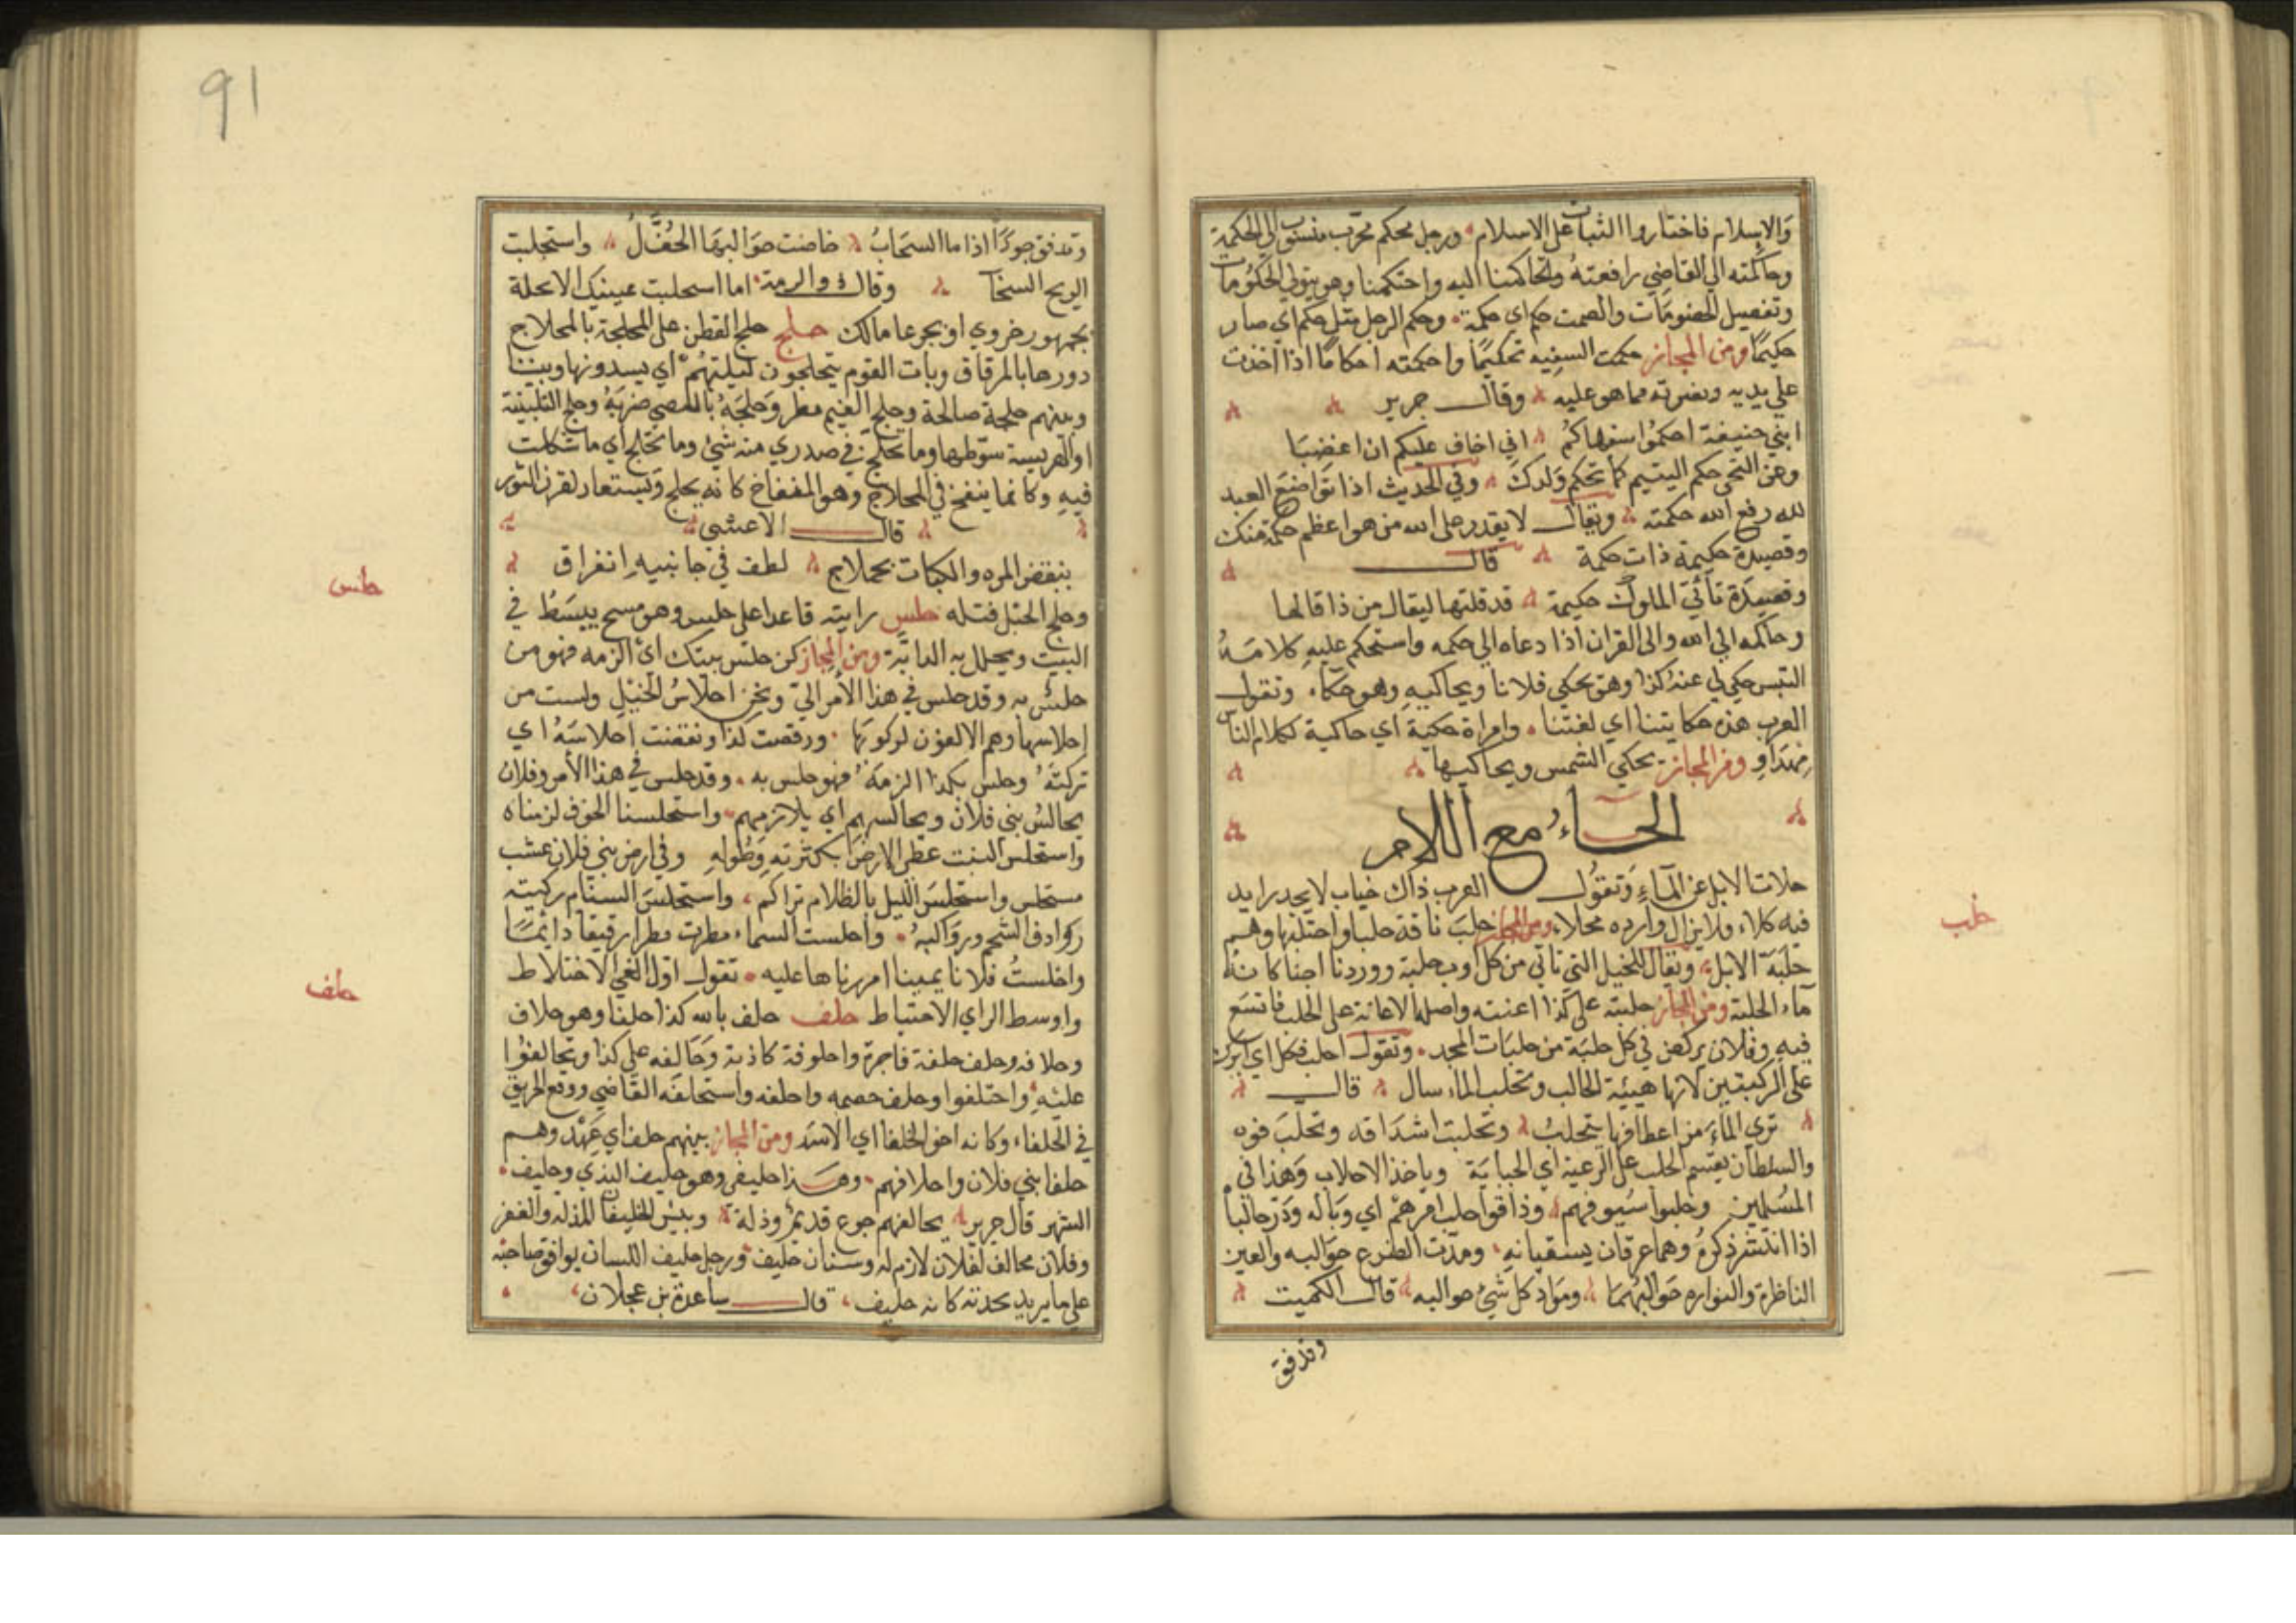 والاسلام فاختاروا الثبات على الاسلام ورجل محكم مجرب منسوب الى الحكمة
وحاكمته الي القاضي رافعته وتحاكمنا اليه واحتكمنا وهو يتولي الحكومات
وتفصيل الخصومات والصمت حكم اي حكمة وحكم الرجل مثل حكم اي صار
حكيما ومن المجاز حكمت السفيه تحكيما واحكمته احكاما اذا اخذت
علي يديه وبصرته مما هو عليه وقال جرير
ابني حنيفة احكموا سفهاكم اني اخاف عليكم ان اغضبا
وعن النخعي حكم اليتيم كما تحكم ولدك وفي الحديث اذا تواضع العبد
لله رفع الله حكمته ويقال لا يقدر على الله من هو اعظم حكمة منك
وقصيدة حكيمة ذات حكمة قال
وقصيدة تأتي الملوك حكيمة قد قلتها ليقال من ذا قالها
وحاكمه الي الله والى القران اذا دعاه الي حكمه واستحكم عليه كلامه
التبس حكي لي عنه كذا وهو يحكي فلانا ويحاكيه وهو حكاء وتقول
العرب هذه حكايتنا اي لغتنا وامراة حكية اي حاكية لكلام الناس
مهذاو ومن المجاز يحكي الشمس ويحاكيها
الحاء مع اللام
حلات الابل عن الماء وتقول العرب ذاك خباب لا يجد رايد
فيه كلاء ولا يزال وارده محلاء ومن المجاز حلب ناقة حلبا واحتلبها وهم
حلبة الابل ويقال للخيل التي تاتي من كل اوب حلبة ووردنا اجنا كانه
ماء الحلبة ومن المجاز حلبته على كذا اعنته واصله الاعانة على الحلب فاتسع
فيه وفلان يركض في كل حلبة من حلبات المجد وتقول احلب فكل اي ابرك
على الركبتين لانها هيئة الحالب وتحلب الماء سال قال
تري الماء من اعطافها يتحلب وتحلبت اشداقه وتحلب فوه
والسلطان يقسم الحلب على الرعية اي الجباية وياخذ الاحلاب وهذا في
المسلمين وحلبوا سيوفهم وذاقوا حلب امرهم اي وباله ودر حالباه
اذا انتشر ذكره وهما عرقان يسقيانه ومدت الضرع حوالبه والعين
الناظرة والفواره حوالبهما ومواد كل شئ حوالبه قال الكميت
وتدفق
حلب
91
وتدفق جودا اذا ما السحاب خاضت حوالبها الحفل واستحلبت
الريح السحاب وقال ذو الرمة اما استحلبت عينيك الا محلة
بجمهور حزوي او بجرعا مالك حلج حلج القطن على المحلجة بالمحلاج
دورها بالمرقاق وبات القوم يتحلجون ليلتهم اي يسدونها وبيننا
وبينهم حلجة صالحة وحلج الغيم مطر وحلجه بالعصي ضربه وحلج التلبينة
او الهريسة سوطها وما تحلج في صدري منه شئ وما تخلج اي ما شككت
فيه وكانما ينفخ في المحلاج وهو المنفاخ كانه يحلج ويستعار لقرن الثور
قال الاعشي
ينفض المرد والكباث بحملاج لطف في جانبيه انفراق
وحلج الحبل فتله حلس رايته قاعدا على حلس وهو مسح يبسط في
البيت ويجلل به الدابة ومن المجاز كن حلس بيتك اي الزمه فهو من
حلس به وقد حلس في هذا الامر الي ونحن احلاس الخيل ولست من
احلاسها وهم الالفون لركوبها ورفضت كذا ونفضت احلاسه اي
تركته وحلس بكذا الزمه فهو حلس به وقد حلس في هذا الامر وفلان
يحالس بني فلان ويحالسهم اي يلازمهم واستحلسنا الخوف لزمناه
واستحلس النبت غطى الارض بكثرته وطوله وفي ارض بني فلان عشب
مستحلس واستحلس الليل بالظلام تراكم واستحلس السنام ركبته
روادف الشحم ورواكبه واحلست السماء مطرت مطرا رقيقا دائما
واحلست فلانا يمينا امررناها عليه تقول اول الغي الاختلاط
واوسط الراي الاحتياط حلف حلف بالله كذا حلفا وهو حلاف
وحلافه وحلف حلفة فاجرة واحلوفة كاذبة وحالفه على كذا وتحالفوا
عليه واحتلفوا وحلف خصمه واحلفه واستحلفه القاضي ووقع الحريق
في الحلفاء وكانه اخو الحلفا اي الاسد ومن المجاز بينهم حلف اي عهد وهم
حلفا بني فلان واحلافهم وهذا حليفي وهو حليف الندي وحليف
السهر قال جرير يحالفهم جوع قديم وذلة وبئس الحليفان المذلة والفقر
وفلان محالف لفلان لازم له وسنان حليف ورجل حليف اللسان يوافق صاحبه
على ما يريد لحدته كانه حليف قال ساعدة بن عجلان
حلس
حلف